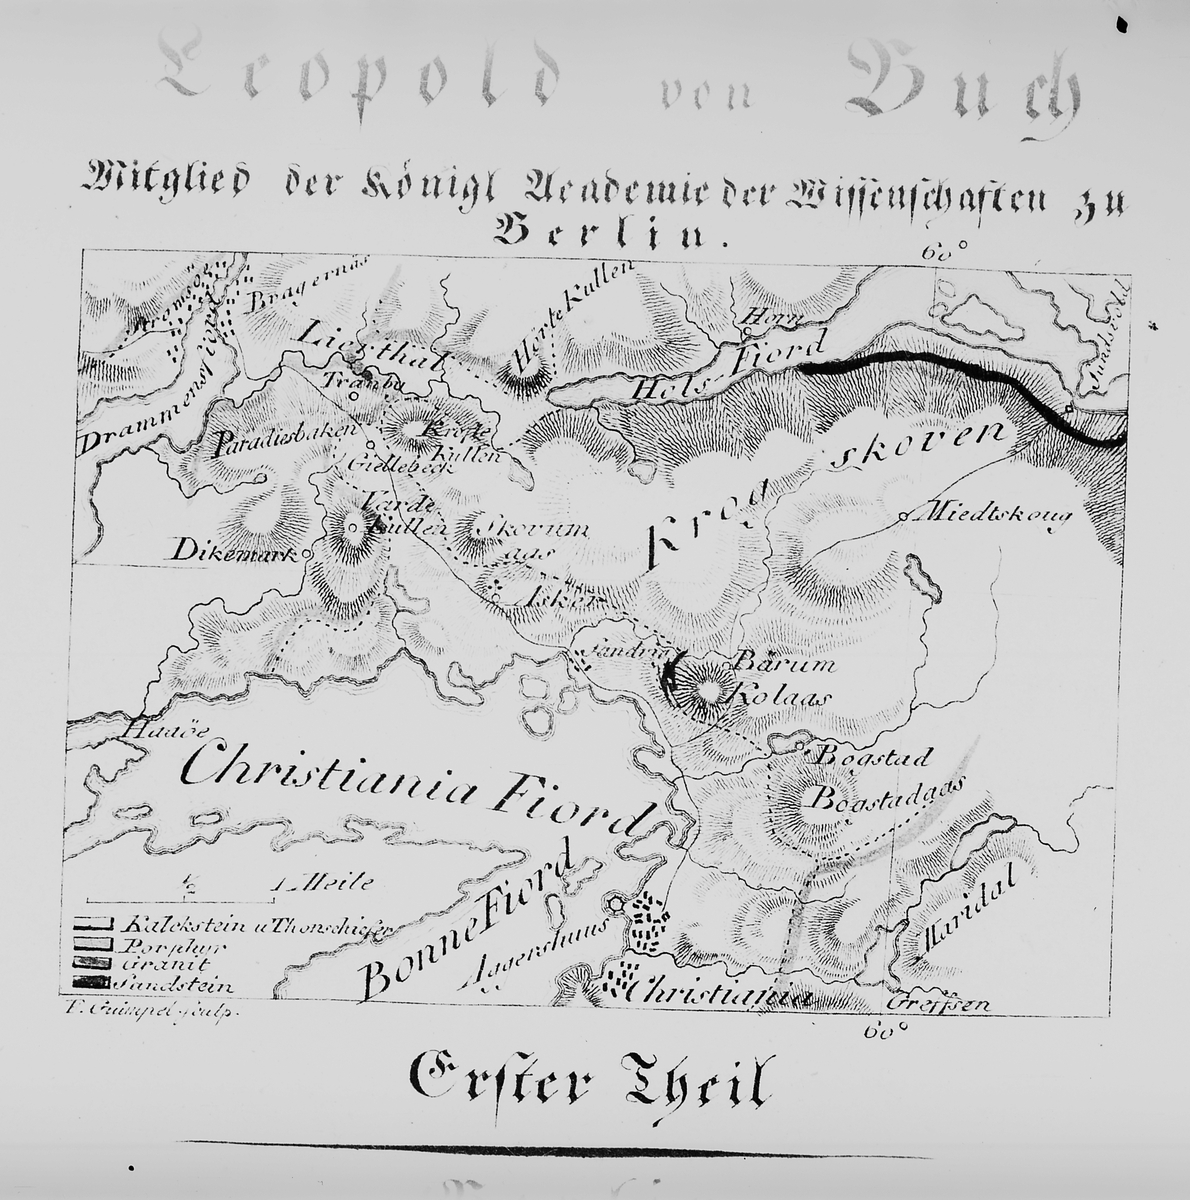 Leopold von Buch
Mitglied der Königl Academie der Wissenschaften zu
Berlin.
60°
Bragernäs
Hörte Kullen
Horn
Lierthal
Hols Fiord
Tranby
Drammensfiord
Paradiesbaken
Krogskoven
Giellebeck
Varde
Kullen
Skovum
aas
Miedtskoug
Dikemark
Asker
Bärum
Kolaas
Haaöe
Christiania Fiord
Bogstad
Bogstadaas
Bonne Fiord
Maridal
½ 1 Meile
Aggershuus
Kalckstein u Thonschiefer
Porphyr
Granit
Sandstein
Christiania
Greffsen
F. Guimpel sculp.
60°
Erster Theil